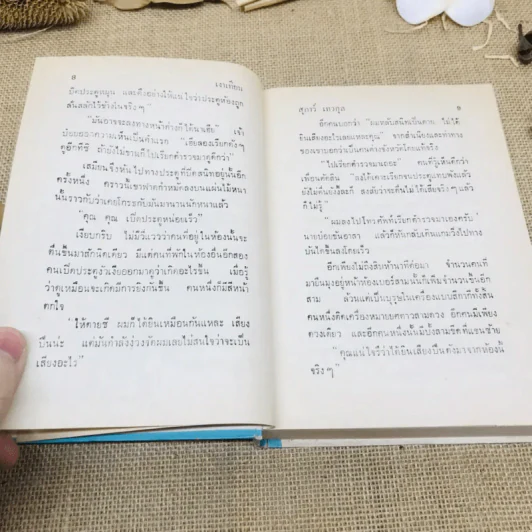 ๘ เงาเทียน
อีกประตูหมุน และดึงอย่างให้แน่ใจว่าประตูห้องถูก
ลั่นสลักไว้ข้างในจริงๆ
"มันอาจจะลงทางหน้าต่างก็ได้นายฮีย" เจ้า
บ๋อยออกความเห็นเป็นคำแรก "เฮียลองเรียกดังๆ
ดูอีกทีซิ ถ้ายังไม่ขานก็ไปเรียกตำรวจมาดูดีกว่า"
เสมียนร่างหันไปทางประตูที่ปิดสนิทอยู่นั้นอีก
ครั้งหนึ่ง คราวนี้เขาฟาดกำหมัดลงบนแผ่นไม้หนา
นั้นราวกับว่าเคยโกรธกับมันมานานนักหนาแล้ว
"คุณ คุณ เปิดประตูหน่อยเร็ว"
เงียบกริบ ไม่มีแววว่าคนที่อยู่ในห้องนั้นจะ
ตื่นขึ้นมาสักนิดเดียว มีแต่คนที่พักในห้องอื่นอีกสอง
คนเปิดประตูงัวเงียออกมาดูว่าเกิดอะไรขึ้น เมื่อรู้
ว่าดูเหมือนจะเกิดมีการยิงกันขึ้น คนหนึ่งก็มีสีหน้า
ตกใจ
"ให้ตายซี ผมก็ได้ยินเหมือนกันแหละ เสียง
ปืนน่ะ แต่มันกำลังง่วงจัดผมเลยไม่สนใจว่าจะเป็น
เสียงอะไร"
สุภาว์ เทวกุล ๙
อีกคนบอกว่า "ผมหลับสนิทเป็นตาย ไม่ได้
ยินเสียงอะไรเลยแหละคุณ" จากสำเนียงและท่าทาง
ของเขาบอกว่าเป็นคนต่างจังหวัดโดยแท้จริง
"ไปเรียกตำรวจมาเถอะ" คนที่รู้เห็นดีกว่า
เพื่อนตัดสิน "ลงได้เตะเรียกจนประตูแทบพังแล้ว
ยังไม่ตื่นยังงี้ละก็ สงสัยว่าจะตื่นไม่ได้เสียจริงๆ แล้ว
ก็ไม่รู้"
"ผมลงไปโทรศัพท์เรียกตำรวจมาเองครับ"
นายบ๋อยขันอาสา แล้วก็หันกลับเดินแกมวิ่งไปทาง
บันไดขึ้นลงโดยเร็ว
อีกเพียงไม่ถึงสิบห้านาทีต่อมา จำนวนคนที่
มายืนมุงอยู่หน้าห้องเบอร์สามนั้นก็เพิ่มจำนวนขึ้นอีก
สาม ล้วนแต่เป็นบุรุษในเครื่องแบบสีกากีทั้งสิ้น
คนหนึ่งติดเครื่องหมายยศดาวสามดวง อีกคนมีเพียง
ดวงเดียว และอีกคนหนึ่งนั้นมีบั้งสามขีดที่แขนซ้าย
"คุณแน่ใจรึว่าได้ยินเสียงปืนดังมาจากห้องนี้
จริงๆ"